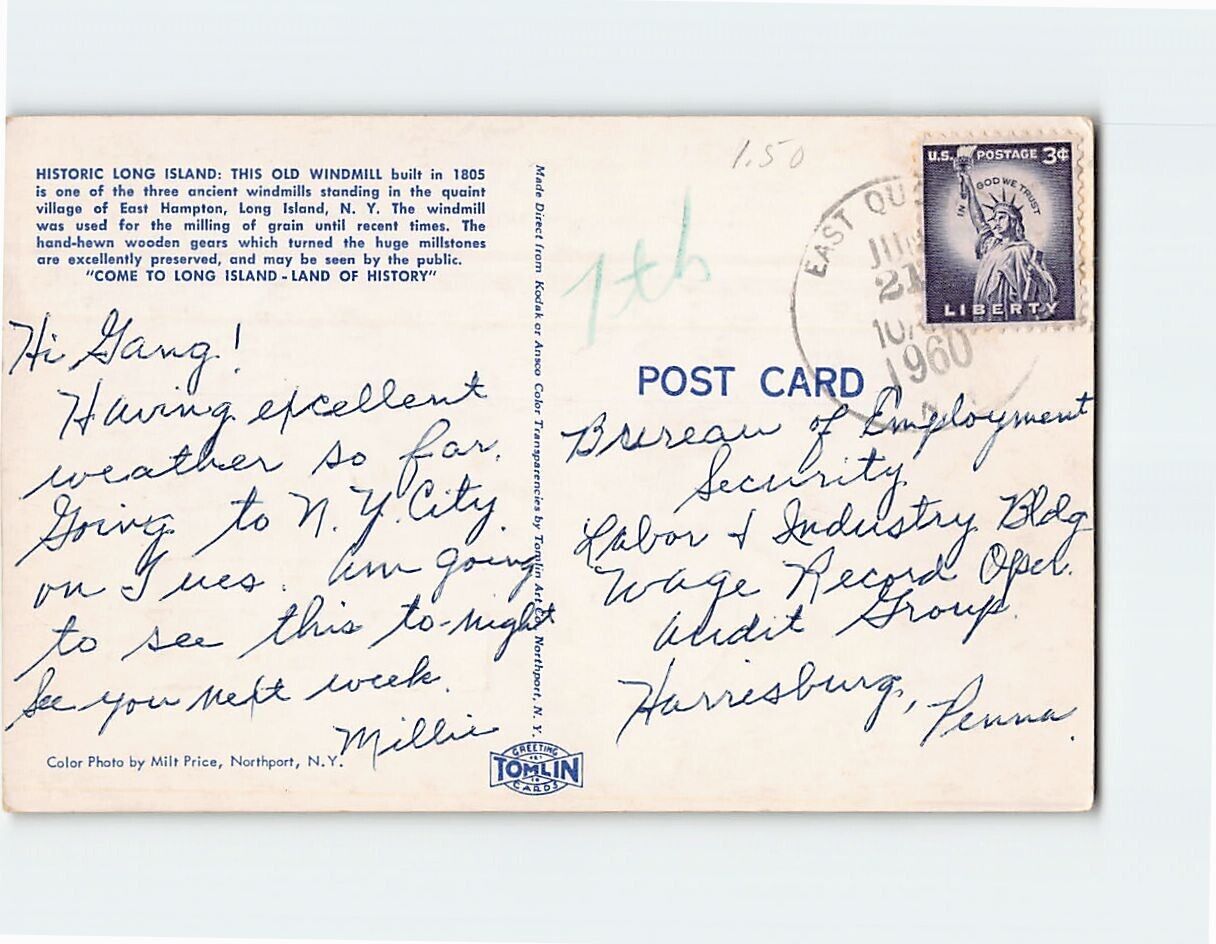 HISTORIC LONG ISLAND: THIS OLD WINDMILL built in 1805
is one of the three ancient windmills standing in the quaint
village of East Hampton, Long Island, N. Y. The windmill
was used for the milling of grain until recent times. The
hand-hewn wooden gears which turned the huge millstones
are excellently preserved, and may be seen by the public.
"COME TO LONG ISLAND - LAND OF HISTORY"
Hi Gang!
Having excellent
weather so far.
Going to N. Y. City
on Tues. Am going
to see this to-night
See you next week.
Millie
Color Photo by Milt Price, Northport, N.Y.
Made Direct from Kodak or Ansco Color Transparencies by Tomlin Art Co. Northport, N. Y.
GREETING
TOMLIN
CARDS
1.50
1th
POST CARD
EAST
21
1960
U.S. POSTAGE 3¢
IN GOD WE TRUST
LIBERTY
Bureau of Employment
Security
Labor & Industry Bldg
Wage Record Oper.
Audit Group.
Harrisburg, Penna.